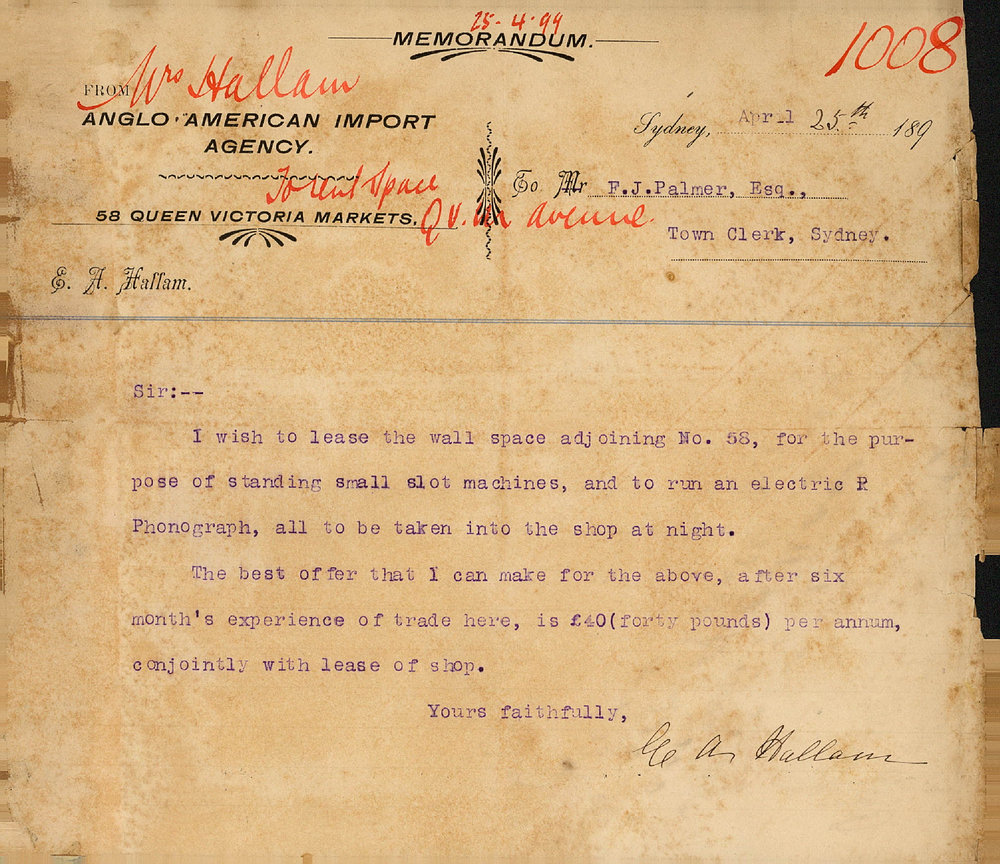 25-4-99
MEMORANDUM.
1008
FROM Mrs Hallam
ANGLO-AMERICAN IMPORT
AGENCY.
To rent Space
58 QUEEN VICTORIA MARKETS, Q V. M avenue.
E. A. Hallam.
Sydney, April 25th 189
To Mr F.J.Palmer, Esq.,
Town Clerk, Sydney.
Sir:--
I wish to lease the wall space adjoining No. 58, for the pur-
pose of standing small slot machines, and to run an electric P
Phonograph, all to be taken into the shop at night.
The best offer that I can make for the above, after six
month's experience of trade here, is £40(forty pounds) per annum,
conjointly with lease of shop.
Yours faithfully,
E A. Hallam